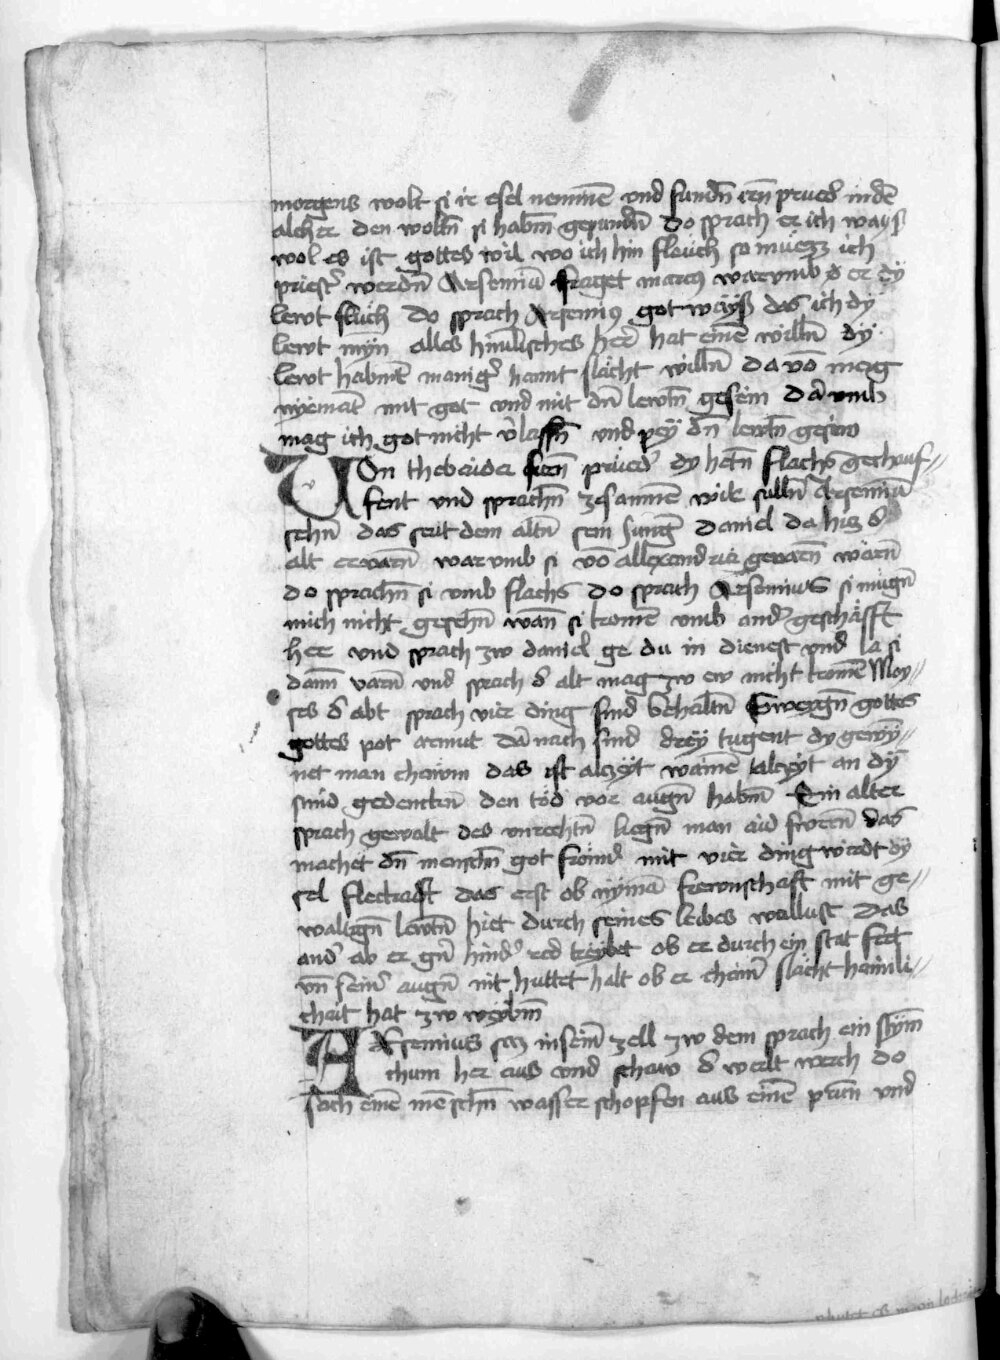 morgens wolt si ir esel nemmē vnd fundn̄ irn̄ prued͛ in dē
alcher den wolltn̄ si habm̄ gepundn̄ do sprach er ich wayß
wol es ist gottes wil wo ich hin fleuch so müezz ich
priest͛ werdn̄ Arsenium fraget marcꝰ warvmb d er dy
lewt fluch do sprach Arsenius got wayß das ich dy
lewt myn alles himlisches her͛ hat einē willn̄ dÿ
lewt habent manig͛ hannt slächt willn̄ da vō mag
nyemāt mit got vnd mit dn̄ lewtn̄ gesein dar͛ vmb
mag ich got nicht v͛lassn̄ vnd pey dn̄ lewtn̄ gesein
Von thebaida furn̄ prüed͛ dy hetn̄ flachs gechauf-
fent vnd sprachn̄ zesammē wir sulln̄ Arseniū
sehn̄ das seit dem altn̄ sein Jung͛ Daniel da his d͛
alt ervarn̄ warvmb si vō allexandria gevarn̄ wärn̄
do sprachn̄ si vmb flachs do sprach Arsenius si mügn̄
mich nicht gesehn̄ wān si komē vmb and͛ geschäfft
her vnd sprach zw daniel ge du in dienest vnd la si
dann varn̄ vnd sprach d͛ alt mag zw ew nicht komē Moy-
ses d͛ abt sprach vier ding sind behaltn̄ Swergn̄ gottes
gottes pot armut dar͛ nach sind dreÿ tugent dy gewÿ-
net man chawm das ist alczeÿt wainē alczeÿt an dÿ
sund gedenckn̄ den tod vor augn̄ habm̄ Ein alter
sprach gewalt des vnrechtn̄ liegn̄ man aid swern̄ das
machet dn̄ menschn̄ got frömd mit vier ding wirdt dÿ
sel fleckhaft das erst ob nymā frewnschaft mit ge-
waltign̄ lewtn̄ hiet durch seines leibes wollust das
and͛ ab er gn̄ hind͛ red treybet ob er durch ein stat fert
vn̄ sein͛ augn̄ nit huttet halt ob er cheinē slächt haimli-
chait hat zw weÿbm̄
Arsenius sas in seīm zell zw dem sprach ein stÿm
chum her aus vnd schaw d͛ welt werch do
sach einē mēschn̄ wasser schopfen aus einē prūn vnd